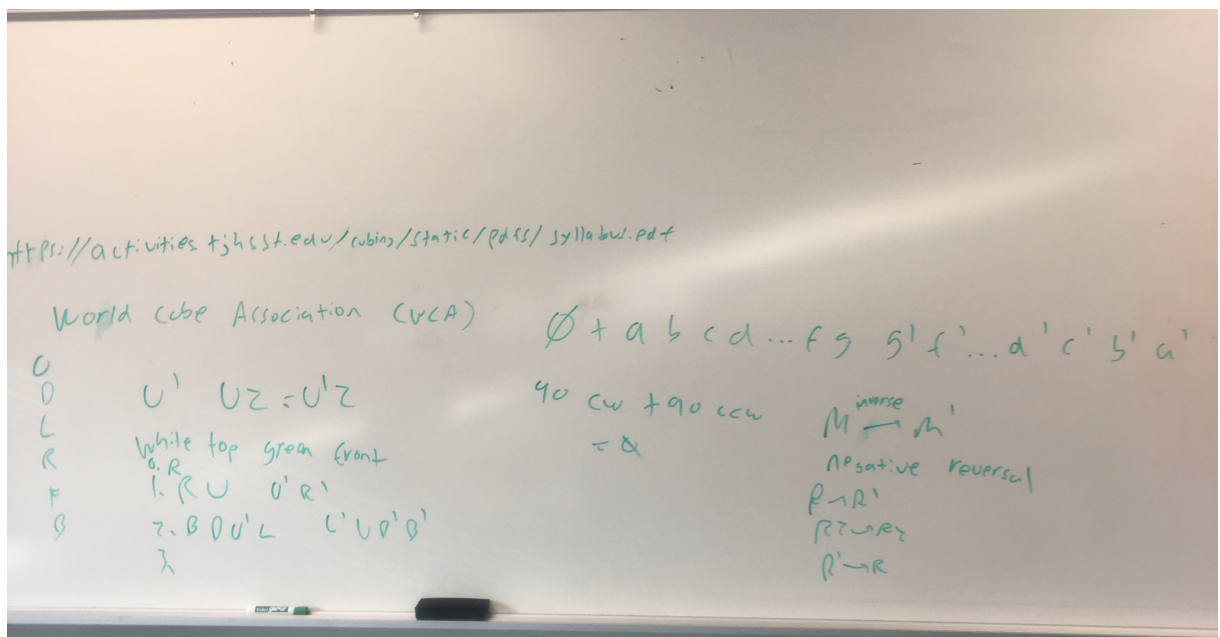 https://activities.tjhsst.edu/cubing/static/pdfs/syllabus.pdf
World Cube Association (WCA)
U
D
L
R
F
B
U' U2 = U'2
White top green front
0. R
1. R U U' R'
2. B D U' L L' U D' B'
3
Ø + a b c d ... f g g' f' ... d' c' b' a'
90 cw + 90 ccw
= Ø
M inverse → M'
negative reversal
R → R'
R2 → R2
R' → R